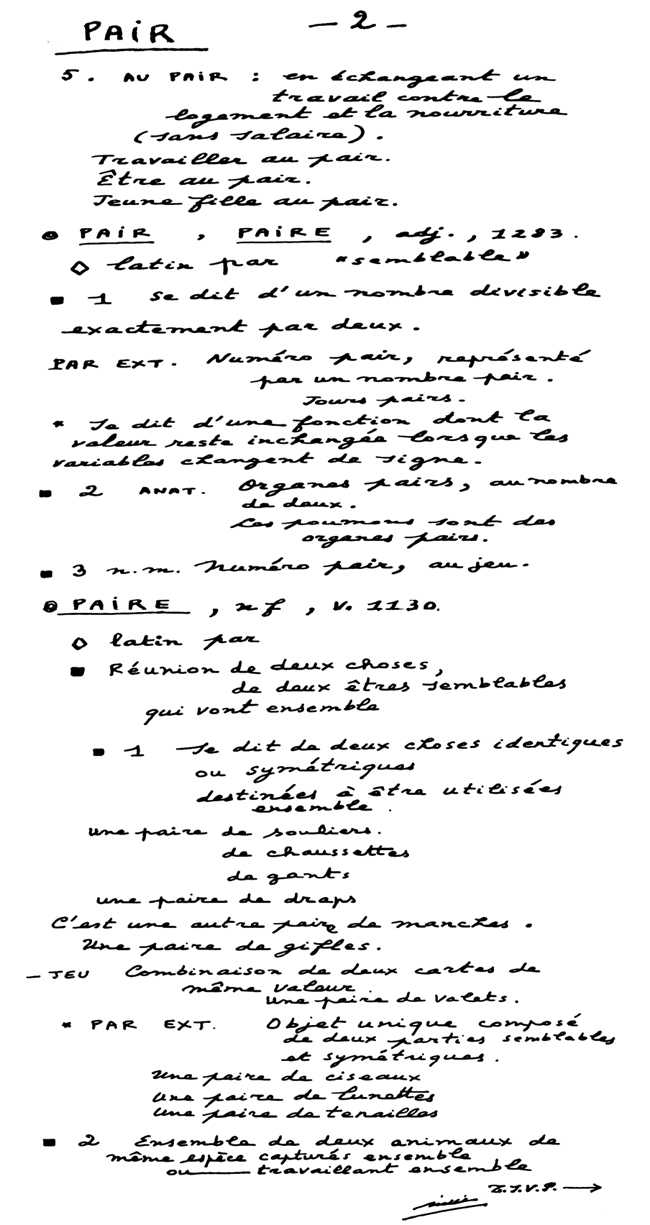 PAIR — 2 —
5. AU PAIR : en échangeant un
travail contre le
logement et la nourriture
(sans salaire).
Travailler au pair.
Être au pair.
Jeune fille au pair.
PAIR , PAIRE , adj. , 1283.
◇ latin par "semblable"
■ 1 Se dit d'un nombre divisible
exactement par deux.
PAR EXT. Numéro pair, représenté
par un nombre pair.
Jours pairs.
* Se dit d'une fonction dont la
valeur reste inchangée lorsque les
variables changent de signe.
■ 2 ANAT. Organes pairs, au nombre
de deux.
Les poumons sont des
organes pairs.
■ 3 n.m. Numéro pair, au jeu.
PAIRE , nf , v. 1130.
◇ latin par
■ Réunion de deux choses,
de deux êtres semblables
qui vont ensemble
■ 1 Se dit de deux choses identiques
ou symétriques
destinées à être utilisées
ensemble.
Une paire de souliers.
de chaussettes
de gants
une paire de draps
C'est une autre paire de manches.
Une paire de gifles.
— JEU Combinaison de deux cartes de
même valeur.
Une paire de valets.
* PAR EXT. Objet unique composé
de deux parties semblables
et symétriques.
Une paire de ciseaux
Une paire de lunettes
Une paire de tenailles
■ 2 Ensemble de deux animaux de
même espèce capturés ensemble
ou —— travaillant ensemble
T.S.V.P. →